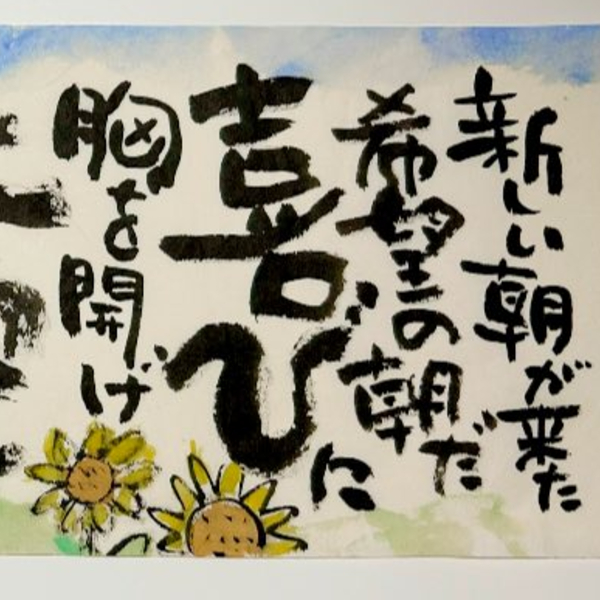 新しい朝が来た
希望の朝だ
喜びに
胸を開げ